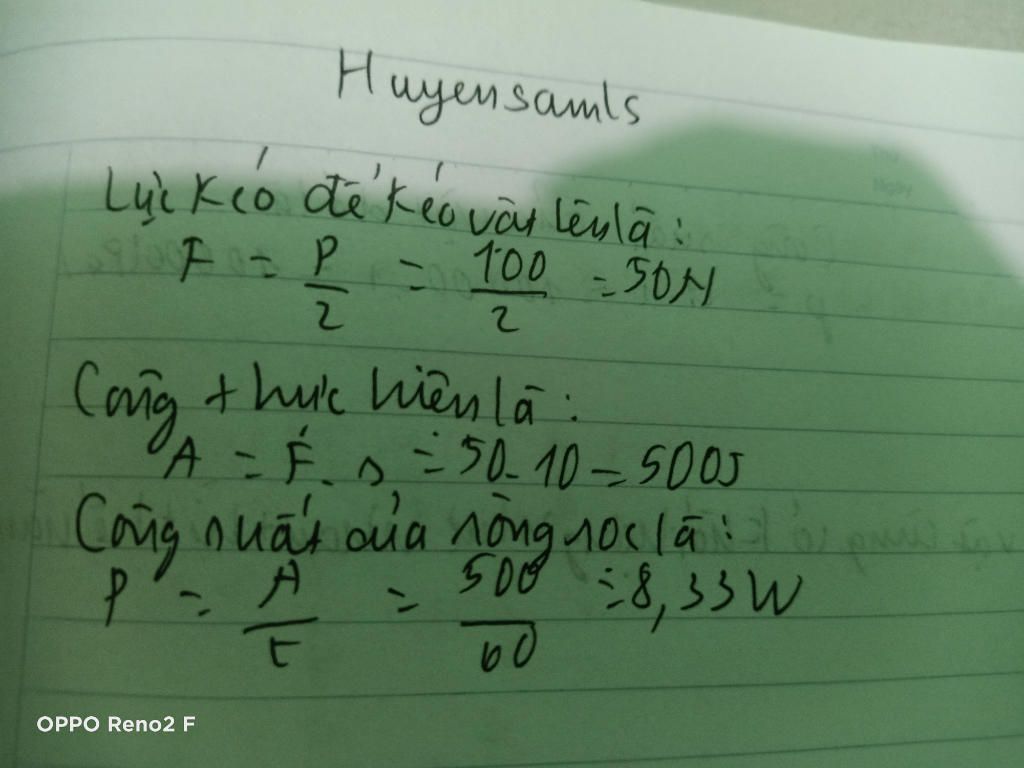 Huyensamls
Lực kéo để kéo vật lên là:
F = P/2 = 100/2 = 50N
Công thực hiện là:
A = F.s = 50.10 = 500J
Công suất của ròng rọc là:
P = A/t = 500/60 = 8,33W
OPPO Reno2 F